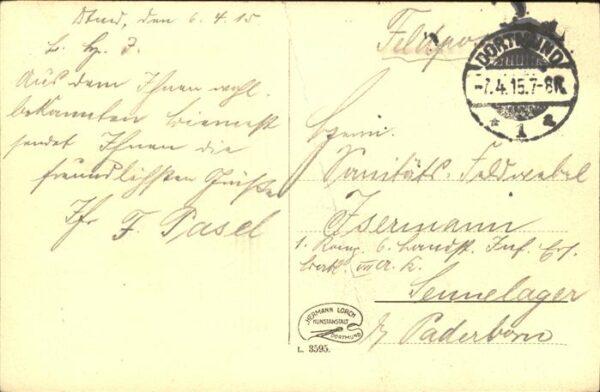 Dtmd, den 6.4.15
L. Hp. J.
Aus dem Ihnen wohl
bekannten
sendet Ihnen die
freundlichsten Grüße
Ihr F. Pasel
Feldpost
DORTMUND
-7.4.15.7-8N
* 1 z
Herrn
Sanitäts-Feldwebel
Isermann
1. Komp. 6. Landst. Inf. Ers.
Batl. VII A. K.
Sennelager
b/ Paderborn
HERMANN LORCH
KUNSTANSTALT
DORTMUND
L. 3595.